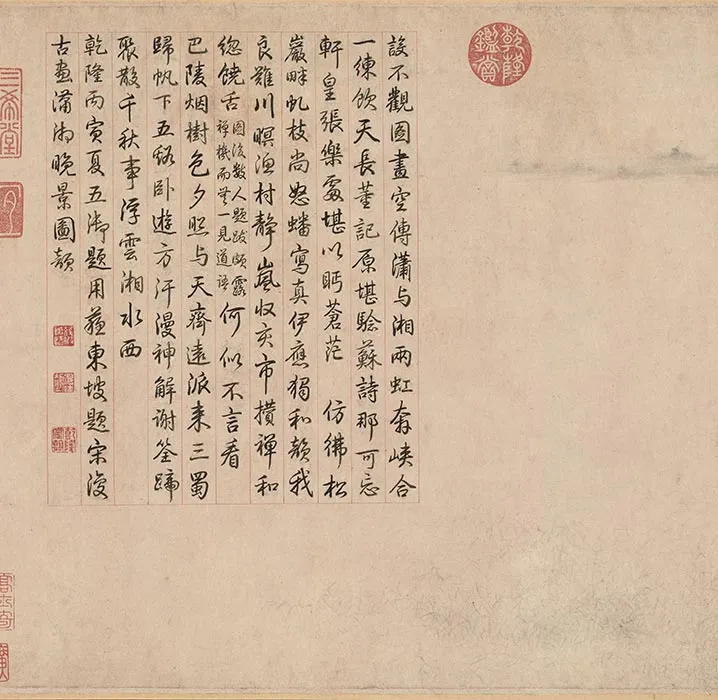 乾隆鑑賞
設不觀圖畫空傳瀟与湘兩虹奔峽合
一練飲天長董記原堪驗蘇詩那可忘
軒皇張樂處堪以眄蒼茫 仿彿松
巖畔虬枝尚怒蟠寫真伊應獨和韻我
良難川暝漁村靜嵐收亥市攢禪和
總饒舌圖後數人題跋頗露禪機而無一見道語何似不言看
巴陵烟樹色夕照与天齊遠派来三蜀
歸帆下五谿卧遊方汗漫神解謝筌蹄
聚散千秋事浮雲湘水西
乾隆丙寅夏五御題用蘇東坡題宋復
古畫瀟湘晚景圖韻
三希堂
高士奇